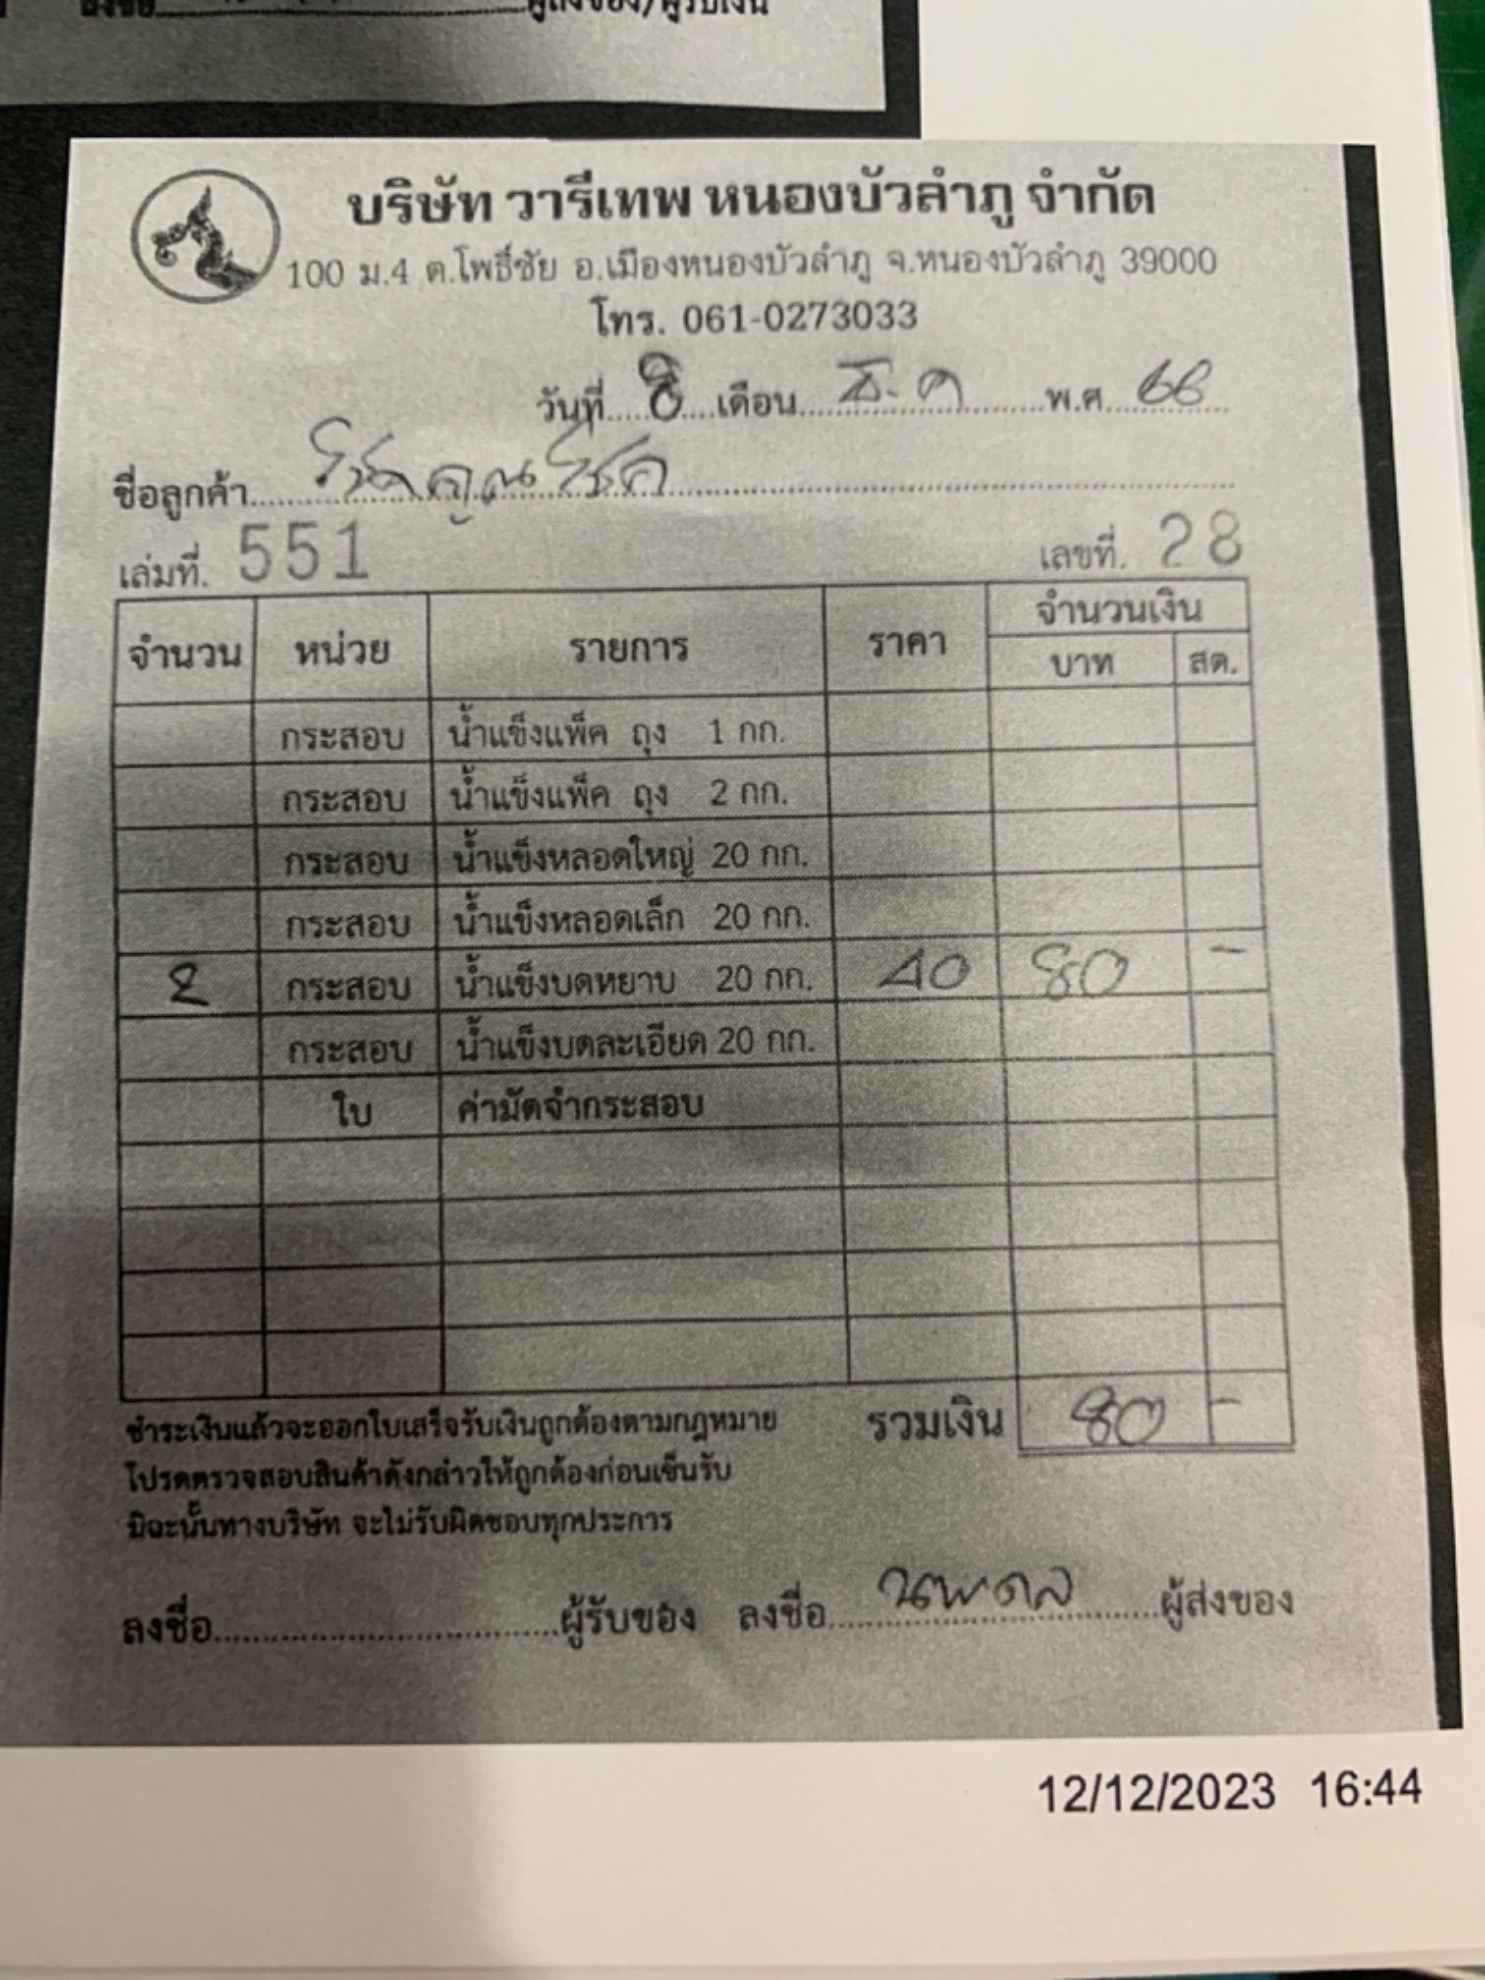 ลงชื่อ ผู้ส่งของ/ผู้รับเงิน
บริษัท วารีเทพ หนองบัวลำภู จำกัด
100 ม.4 ต.โพธิ์ชัย อ.เมืองหนองบัวลำภู จ.หนองบัวลำภู 39000
โทร. 061-0273033
วันที่ 8 เดือน ธ.ค พ.ศ 66
ชื่อลูกค้า โชคคูณโชค
เล่มที่. 551 เลขที่. 28
จำนวน หน่วย รายการ ราคา จำนวนเงิน
บาท สต.
กระสอบ น้ำแข็งแพ็ค ถุง 1 กก.
กระสอบ น้ำแข็งแพ็ค ถุง 2 กก.
กระสอบ น้ำแข็งหลอดใหญ่ 20 กก.
กระสอบ น้ำแข็งหลอดเล็ก 20 กก.
2 กระสอบ น้ำแข็งบดหยาบ 20 กก. 40 80 -
กระสอบ น้ำแข็งบดละเอียด 20 กก.
ใบ ค่ามัดจำกระสอบ
ชำระเงินแล้วจะออกใบเสร็จรับเงินถูกต้องตามกฎหมาย รวมเงิน 80 -
โปรดตรวจสอบสินค้าดังกล่าวให้ถูกต้องก่อนเซ็นรับ
มิฉะนั้นทางบริษัท จะไม่รับผิดชอบทุกประการ
ลงชื่อ ผู้รับของ ลงชื่อ นพดล ผู้ส่งของ
12/12/2023 16:44